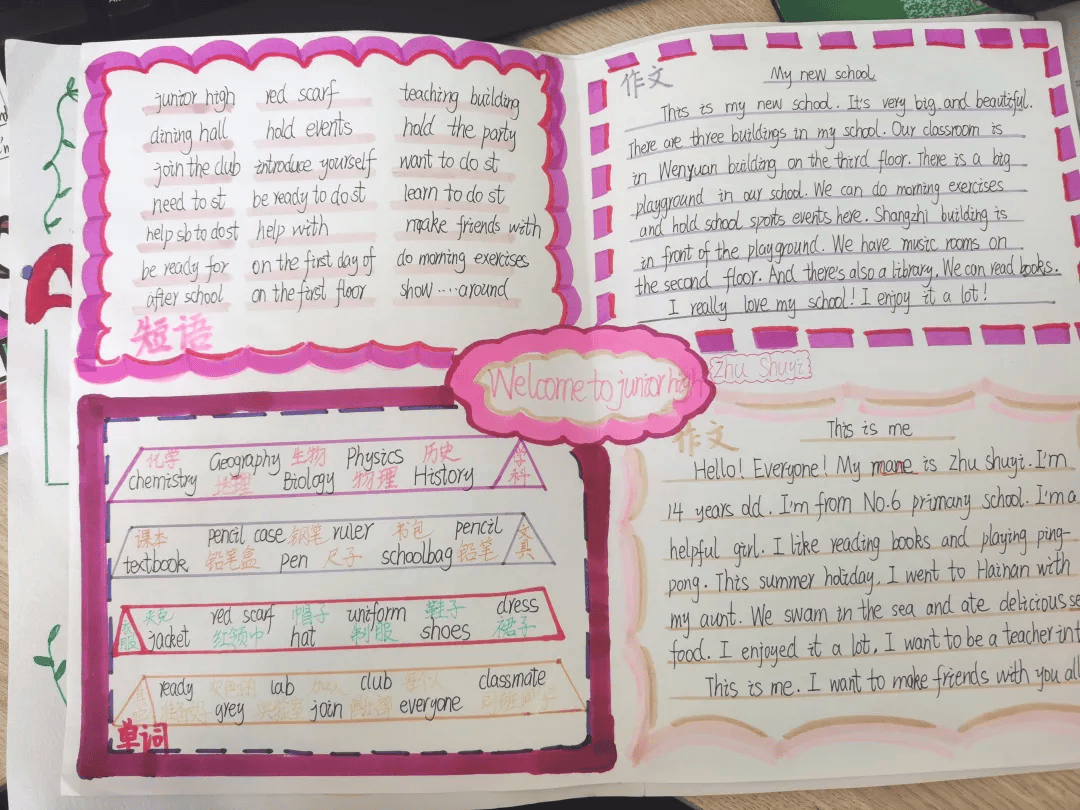 junior high red scarf teaching building
dining hall hold events hold the party
join the club introduce yourself want to do st
need to st be ready to do st learn to do st
help sb to do st help with make friends with
be ready for on the first day of do morning exercises
after school on the first floor show ····around
短语
作文
My new school
This is my new school. It's very big and beautiful.
There are three buildings in my school. Our classroom is
in Wenyuan building on the third floor. There is a big
playground in our school. We can do morning exercises
and hold school sports events here. Shangzhi building is
in front of the playground. We have music rooms on
the second floor. And there's also a library. We can read books.
I really love my school! I enjoy it a lot!
Welcome to junior high
Zhu Shuyi
化学 Geography 生物 Physics 历史
chemistry 地理 Biology 物理 History
学科
课本 pencil case 钢笔 ruler 书包 pencil
textbook 铅笔盒 pen 尺子 schoolbag 铅笔
文具
夹克 red scarf 帽子 uniform 鞋子 dress
服 jacket 红领巾 hat 制服 shoes 裙子
ready lab club 每个人 classmate
grey 实验室 join everyone
单词
作文
This is me
Hello! Everyone! My mane is Zhu Shuyi. I'm
14 years old. I'm from NO.6 primany school. I'm a
helpful girl. I like reading books and playing ping-
pong. This summer holiday, I went to Hainan with
my aunt. We swam in the sea and ate delicious se
food. I enjoyed it a lot, I want to be a teacher in t
This is me. I want to make friends with you all